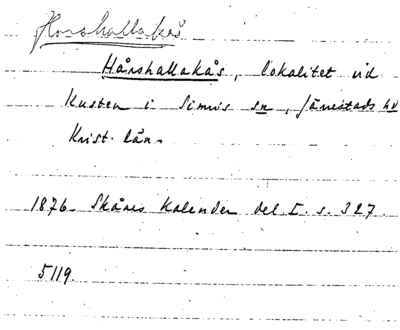 Horshallakås
Hårshallakås, lokalitet vid
Kusten i Simris sn, Järrestads hd
Krist. län.
1876. Skånes Kalender del I. s. 327.
5119.